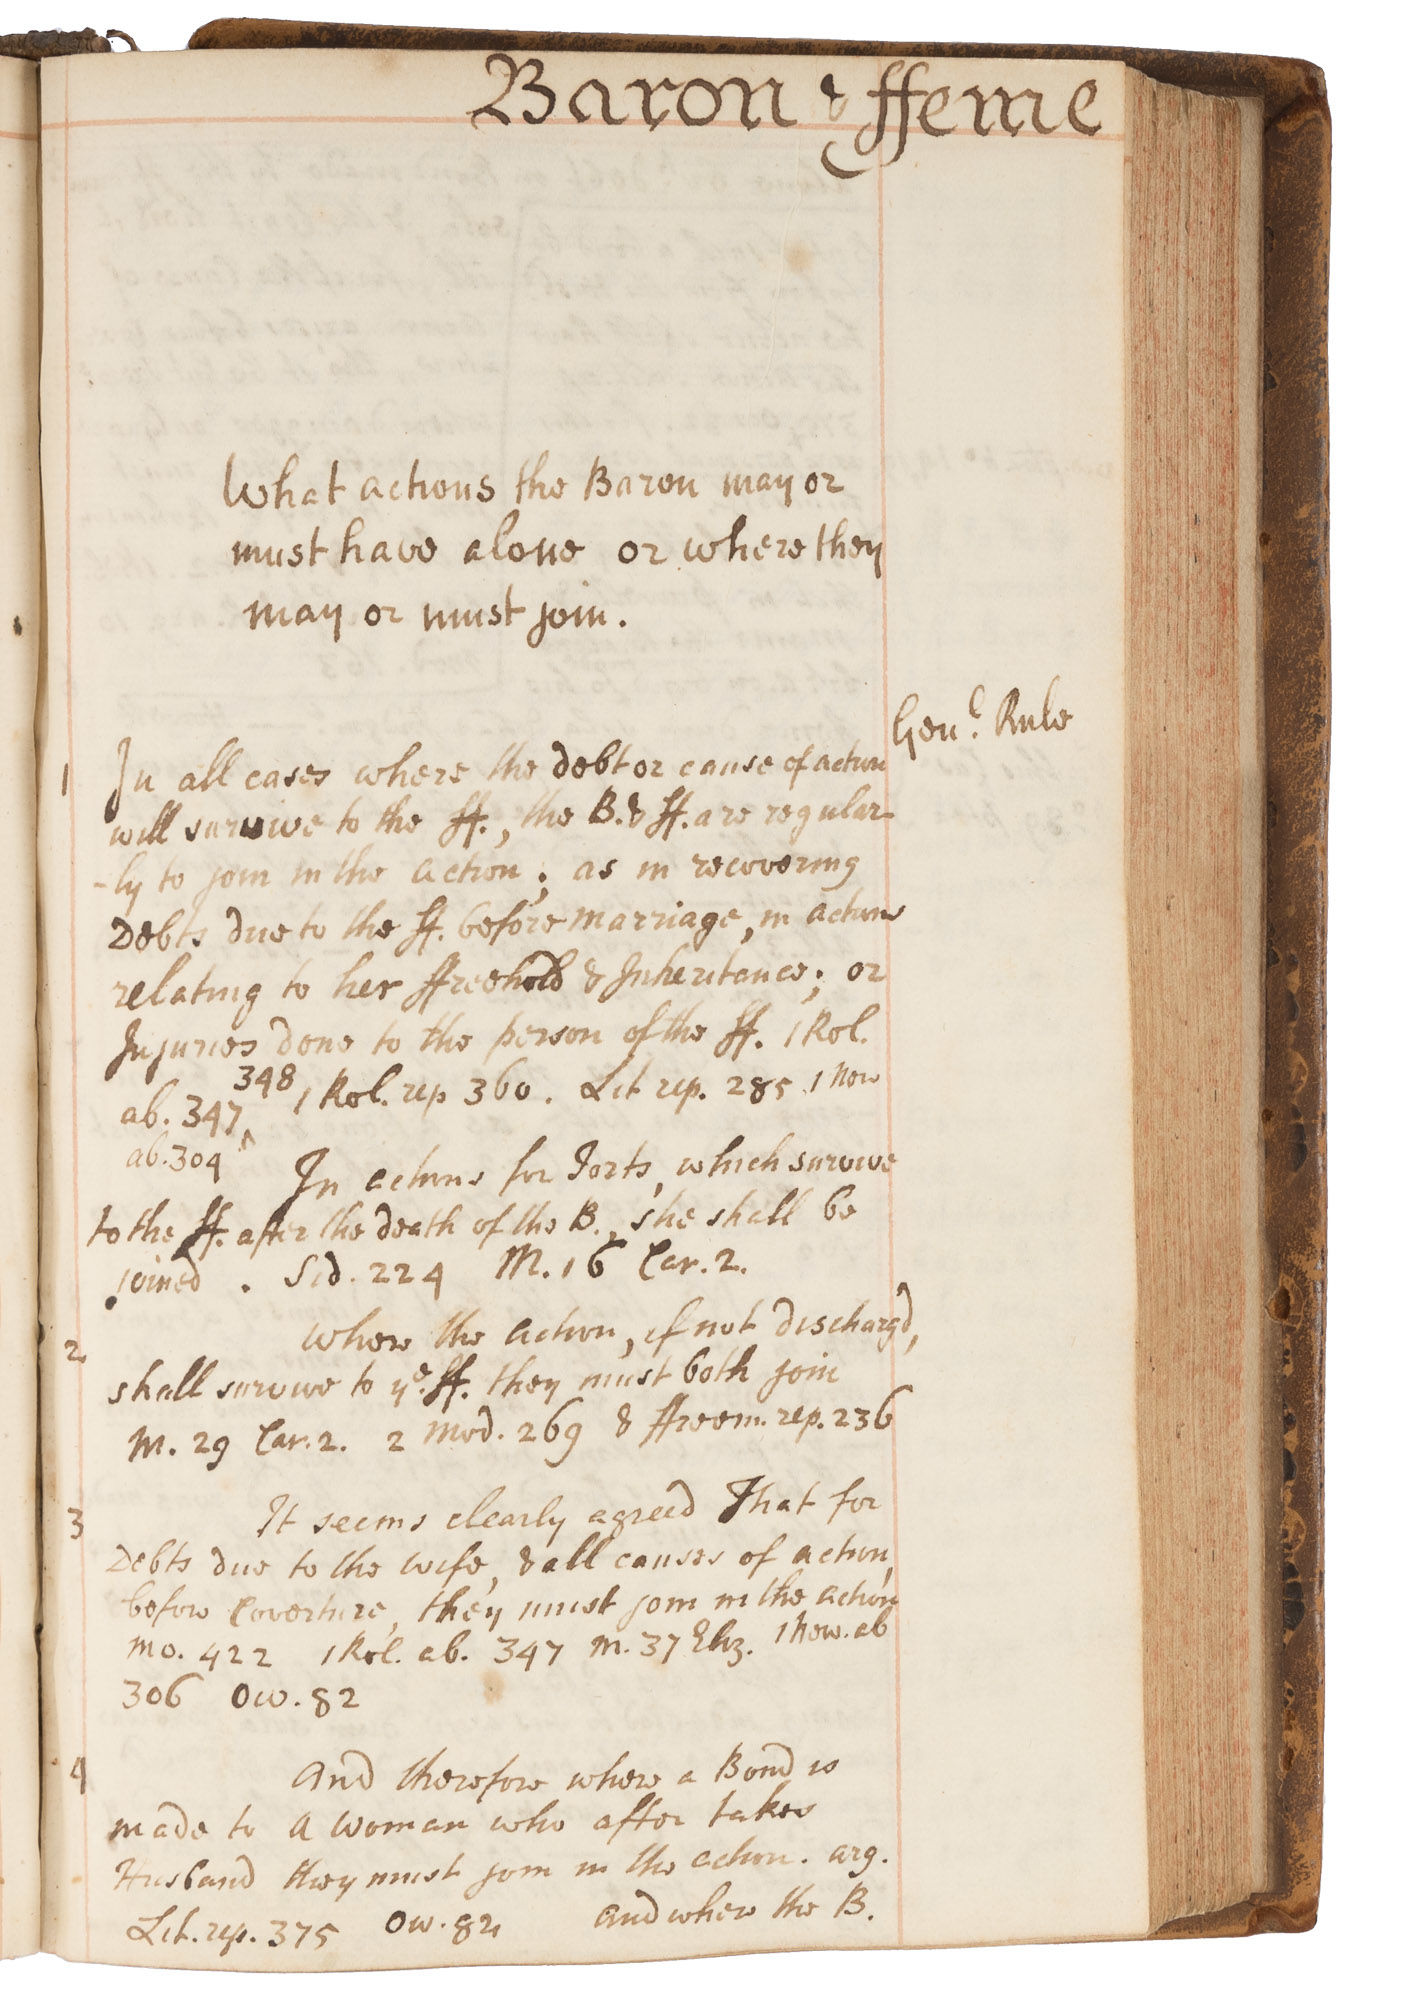 Baron & ffeme
What actions the Baron may or
must have alone or where they
may or must join.
Gen.l Rule
1 In all cases where the debt or cause of action
will survive to the ff., the B. & ff. are regular-
-ly to join in the action; as in recovering
Debts due to the ff. before marriage, in actions
relating to her ffreehold & Inheritance; or
Injuries done to the person of the ff. 1 Rol.
ab. 347, 348 1 Rol. rep 360. Lit rep. 285 1 New
ab. 304 In actions for Torts, which survive
to the ff. after the death of the B., she shall be
joined. Sid. 224 M. 16 Car. 2.
2 Where the action, if not discharg'd,
shall survive to ye. ff. they must both join
M. 29 Car. 2. 2 Mod. 269 & ffreem. rep. 236
3 It seems clearly agreed That for
Debts due to the wife, & all causes of action,
before Coverture, they must join in the action
Mo. 422 1 Rol. ab. 347 M. 37 Eliz. 1 New. ab
306 Ow. 82
4 And therefore where a Bond is
made to a woman who after takes
Husband they must join in the action. arg.
Lit. rep. 375 Ow. 82 and where the B.